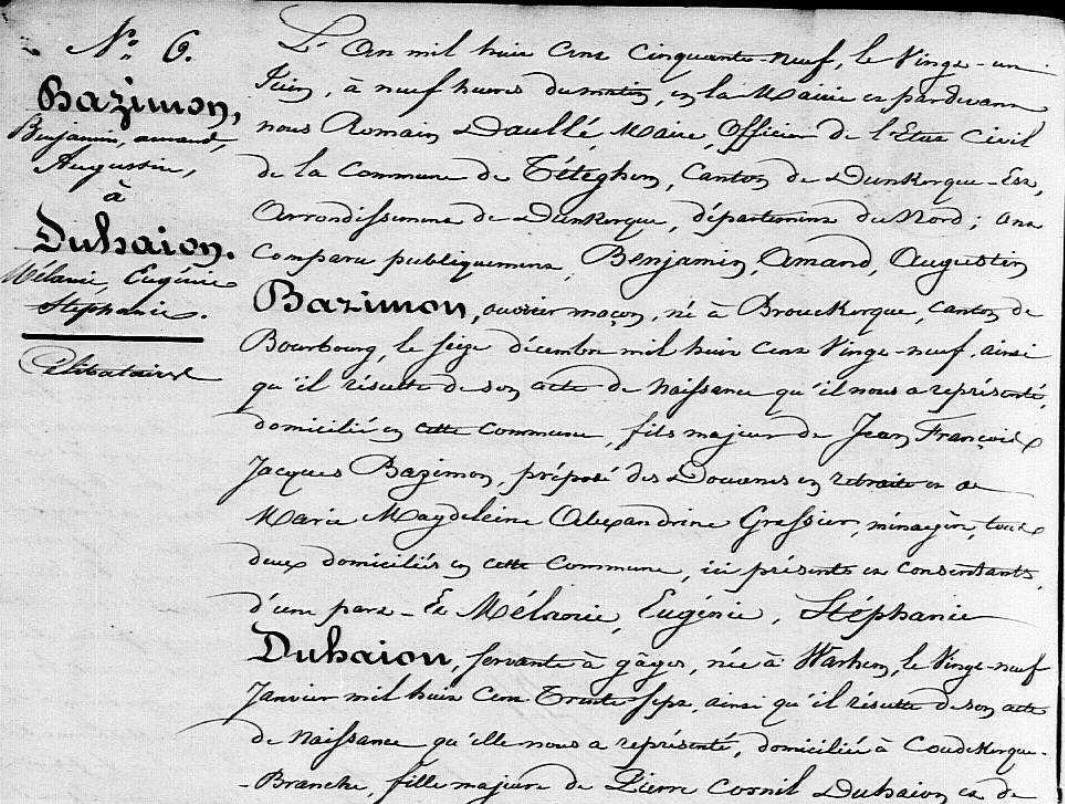 N° 6.
Bazimon,
Benjamin, amand,
Augustin,
à
Duhaion.
Mélanie, Eugénie
Stéphanie.
Célibataires
L'An mil huit Cent Cinquante-neuf, le Vingt-un
Juin, à neuf heures du matin, en la Mairie et pardevant
nous Romain Daullé, Maire, Officier de l'Etat Civil
de la Commune de Téteghem, Canton de Dunkerque-Est,
Arrondissement de Dunkerque, département du Nord; ont
Comparu publiquement, Benjamin, Amand, Augustin
Bazimon, ouvrier maçon, né à Brouckerque, Canton de
Bourbourg, le seize décembre mil huit cent Vingt-neuf, ainsi
qu'il résulte de son acte de Naissance qu'il nous a représenté,
domicilié en cette Commune, fils majeur de Jean François
Jacques Bazimon, préposé des Douanes en retraite et de
Marie Magdeleine Alexandrine Grassier, ménagère, tous
deux domiciliés en cette Commune, ici présents et Consentants,
d'une part - Et Mélanie, Eugénie, Stéphanie
Duhaion, servante à gâges, née à Warhem, le Vingt-neuf
Janvier mil huit Cent Trente sept, ainsi qu'il résulte de son acte
de Naissance qu'elle nous a représenté, domiciliée à Coudekerque-
-Branche, fille majeure de Pierre Cornil Duhaion et de